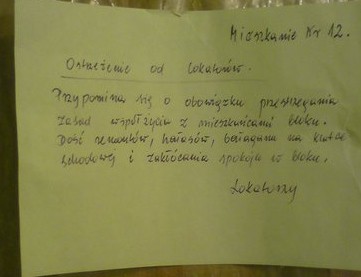 Mieszkanie Nr 12.
Ostrzeżenie od lokatorów.
Przypomina się o obowiązku przestrzegania
zasad współżycia z mieszkańcami bloku.
Dość remontów, hałasów, bałagana na klatce
schodowej i zakłócania spokoju w bloku.
Lokatorzy